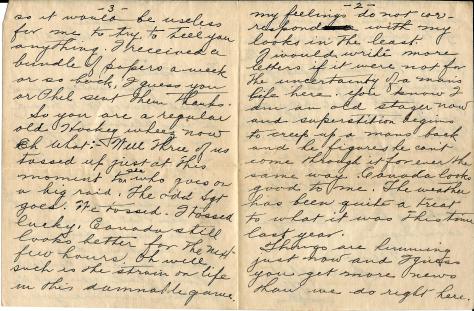 -2-
my feelings do not cor-
respond with my
looks in the least.
I would write more
letters if it were not for
the uncertainty of a mans
life here. You know I
am an old stager now
and superstition begins
to creep up a mans back
and he figures he can't
come through it for ever the
same way. Canada looks
good to me. The weather
has been quite a treat
to what it was this time
last year.
Things are humming
just now and I guess
you get more news
than we do right here.
-3-
so it would be useless
for me to try to tell you
anything. I received a
bundle of papers a week
or so back, I guess you
or Phil sent them thanks.
So you are a regular
old Hockey wheez now
Eh what? Well Three of us
tossed up just at this
moment to see who goes on
a big raid. The odd Sgt
goes. We tossed. I tossed
lucky. Canada still
looks better for the next
few hours. Oh well
such is the strain on life
in this damnable game.